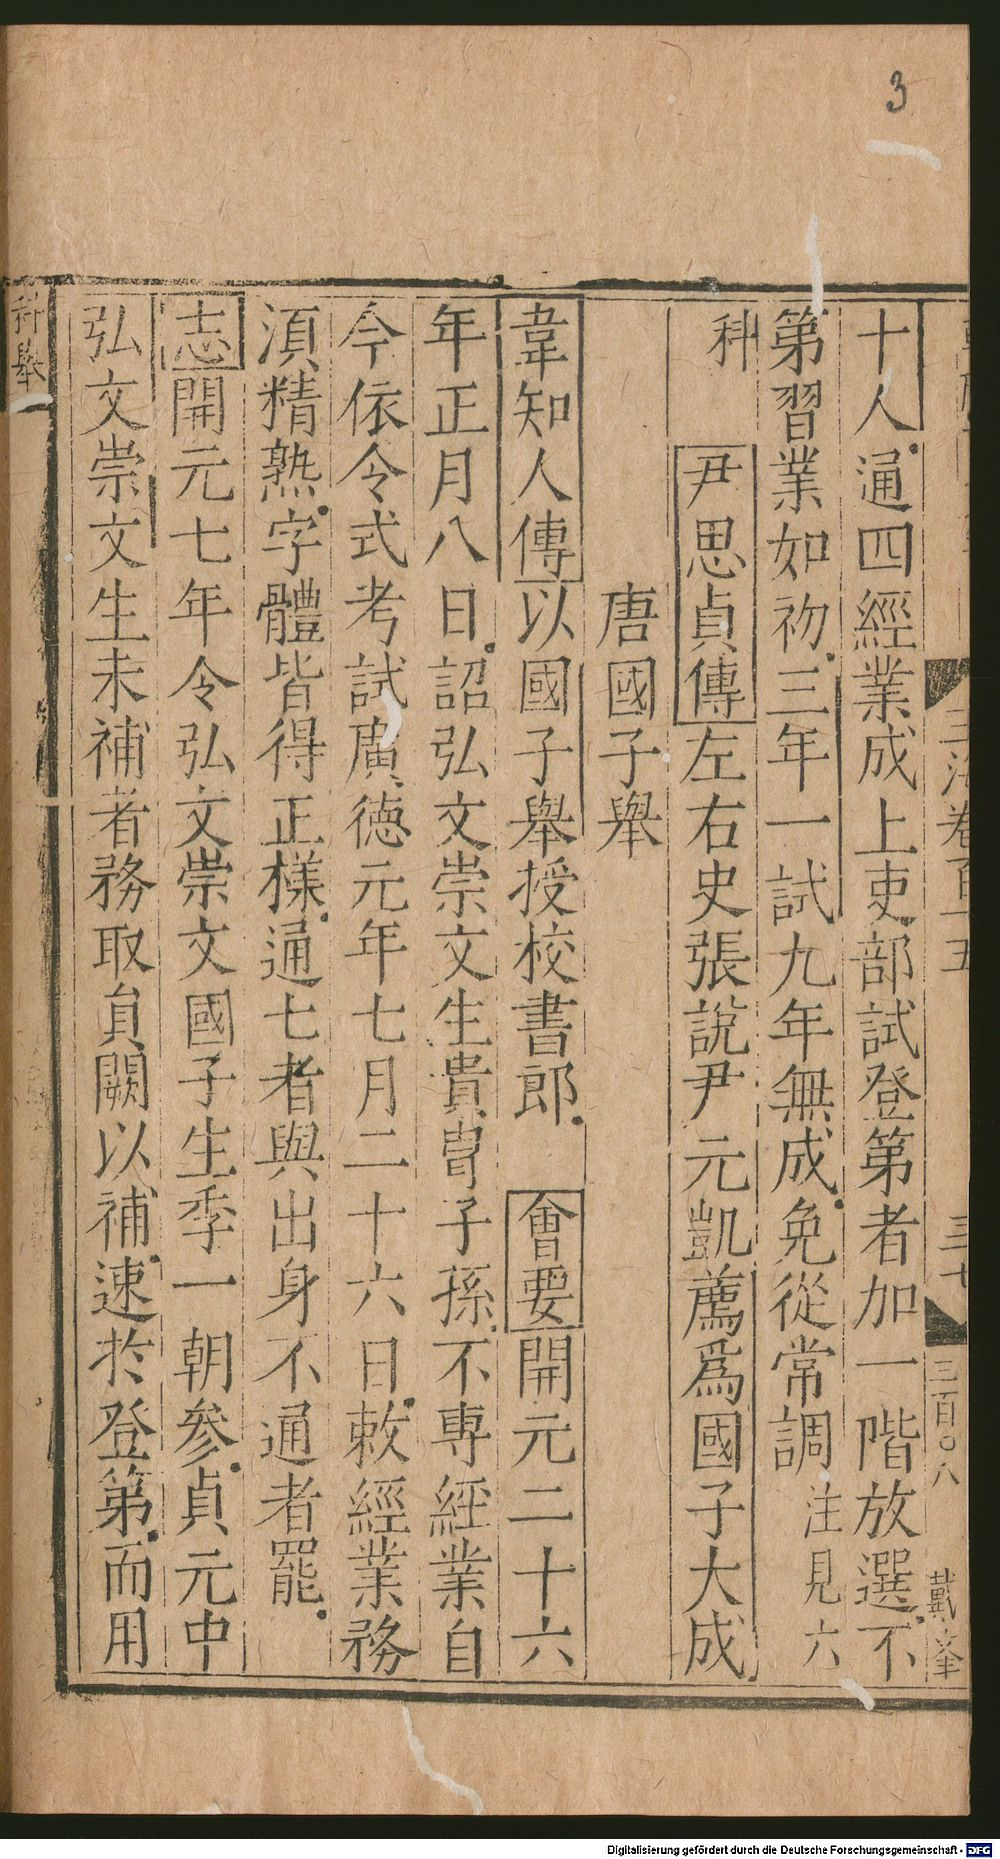 3
十人通四經業成上吏部試登第者加一階放選不
第習業如初三年一試九年無成免從常調注見六
科 尹思貞傳左右史張說尹元凱薦爲國子大成
唐國子舉
韋知人傳以國子舉授校書郎 會要開元二十六
年正月八日詔弘文崇文生貴胄子孫不專經業自
今依令式考試廣德元年七月二十六日敕經業務
湏精熟字體皆得正樣通七者與出身不通者罷
志開元七年令弘文崇文國子生季一朝參貞元中
弘文崇文生未補者務取員闕以補速於登第而用
科舉
玉海卷百十五
三十七
三百〇八
戴
Digitalisierung gefördert durch die Deutsche Forschungsgemeinschaft - DFG